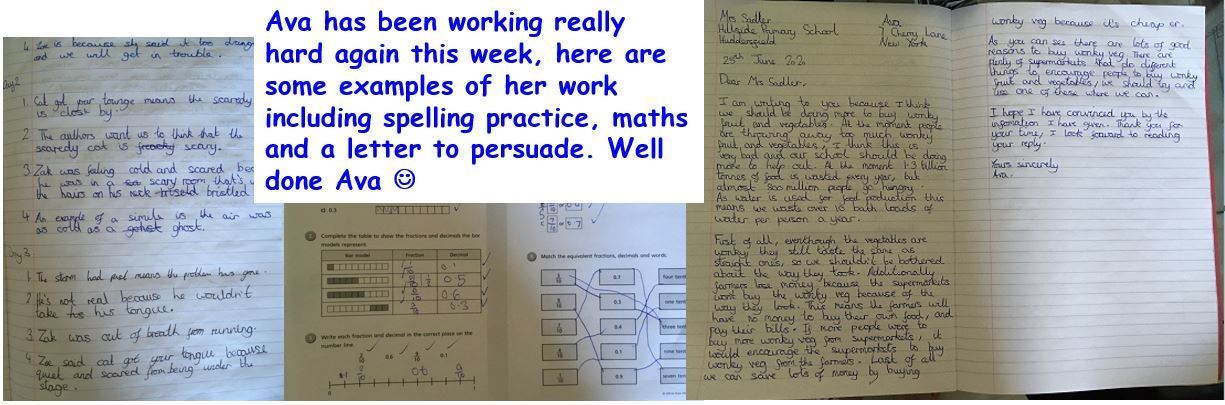 Ava has been working really
hard again this week, here are
some examples of her work
including spelling practice, maths
and a letter to persuade. Well
done Ava ☺
4. Zoe is because she said it too
and we will get in trouble.
Day 2
1. Cat got your tounge means the scaredy
is close by.
2. The authors want us to think that the
scaredy cat is scary.
3. Zak was feeling cold and scared
he was in a scary room that's
the hairs on his neck bristled
4 An example of a simile is the air was
as cold as a ghost.
Day 3
1. The storm had means the problem has gone.
2. He's not real because he wouldn't
take his tongue.
3. Zak was out of breath from running.
4. Zoe said cat got your tongue because
quiet and scared from being under the
stage.
c) 0.3
Complete the table to show the fractions and decimals the bar
models represent.
Bar model Fraction Decimal
0.1
0.5
0.6
0.3
Write each fraction and decimal in the correct place on the
number line.
0.6 0.1
0
Match the equivalent fractions, decimals and words.
0.7 four
0.3 one
0.4 three
0.1 nine
0.9 seven
Mrs Sadler
Hillside Primary School
Huddersfield
Ava
7 Cherry Lane
New York
25th June 2020
Dear Mrs Sadler,
I am writing to you because I think
we should be doing more to buy wonky
fruit and vegetables. At the moment people
are throwing away too much wonky
fruit and vegetables, I think this is
very bad and our school should be doing
more to help out. At the moment 1.3 billion
tonnes of food is wasted every year, but
almost 800 million people go hungry.
As water is used for food production this
means we waste over 10 bath loads of
water per person a year.
First of all, eventhough the vegetables are
wonky they still taste the same as
straight ones, so we shouldn't be bothered
about the way they look. Additionally
farmers lose money because the supermarkets
wont buy the wonky veg because of the
way they look. This means the farmers will
have no money to buy their own food, and
pay their bills. If more people were to
buy more wonky veg from supermarkets, it
would encourage the supermarkets to buy
wonky veg from the farmers. Last of all
we can save lots of money by buying
wonky veg because it's cheaper.
As you can see there are lots of good
reasons to buy wonky veg. There are
plenty of supermarkets that do different
things to encourage people to buy wonky
fruit and vegetables, we should try and
use one of these where we can.
I hope I have convinced you by the
information I have given. Thank you for
your time, I look forward to reading
your reply.
Yours sincerely
Ava.